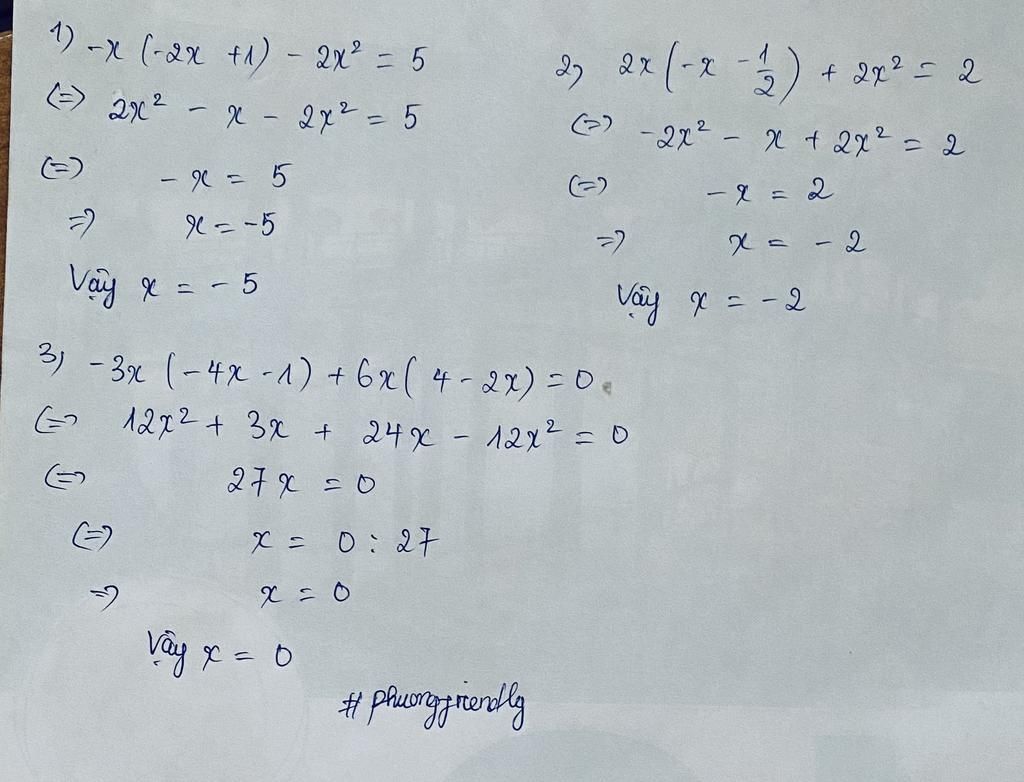 1) -x (-2x +1) - 2x² = 5
(=) 2x² - x - 2x² = 5
(=) -x = 5
=) x = -5
Vậy x = -5
2) 2x(-x - 1/2) + 2x² = 2
(=) -2x² - x + 2x² = 2
(=) -x = 2
=) x = -2
Vậy x = -2
3) -3x (-4x -1) + 6x( 4 - 2x) = 0
(=) 12x² + 3x + 24x - 12x² = 0
(=) 27x = 0
(=) x = 0 : 27
=) x = 0
Vậy x = 0
# phuongfriendly